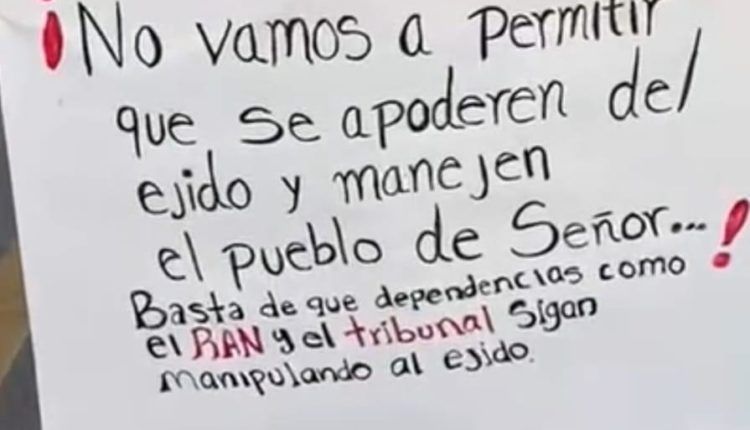 ¡No vamos a permitir
que se apoderen del
ejido y manejen
el pueblo de Señor...!
Basta de que dependencias como
el RAN y el tribunal Sigan
manipulando al ejido.